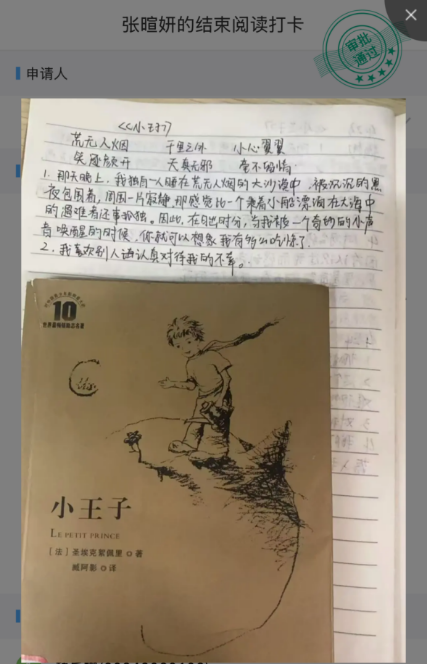 张暄妍的结束阅读打卡
审批
通过
申请人
《小王子》
荒无人烟 千里之外 小心翼翼
笑逐颜开 天真无邪 毫不留情
1.那天晚上,我独自一人睡在荒无人烟的大沙漠中,被沉沉的黑
夜包围着,周围一片寂静,那感觉比一个乘着小船漂泊在大海中
的遇难者还事孤独。因此,在日出时分,当我被一个奇妙的小声
音唤醒的时候,你就可以想象我有多么吃惊了。
2.我喜欢别人语认真对待我的不幸。
10
小王子
LE PETIT PRINCE
[法] 圣埃克絮佩里 著
臧阿影 译